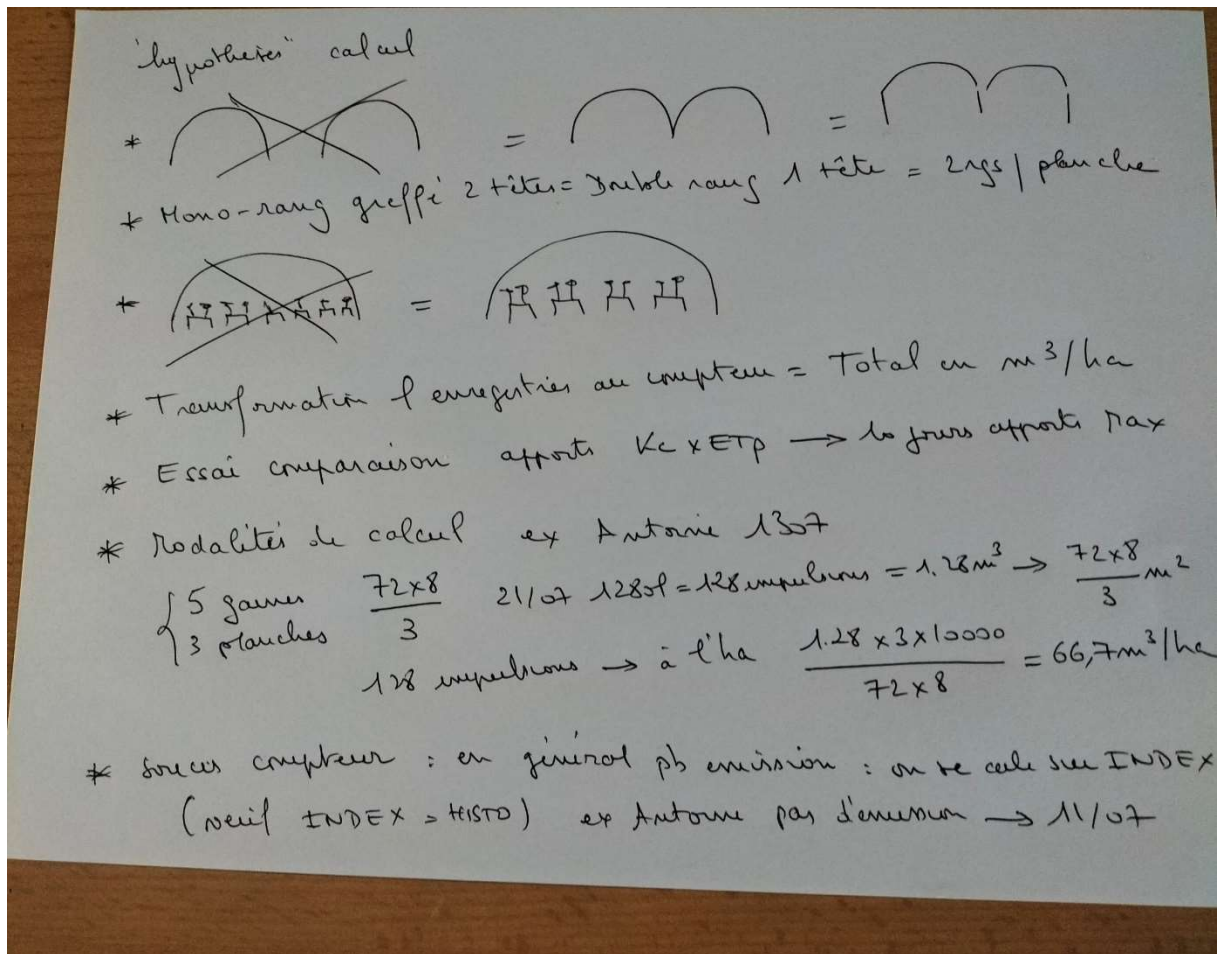 "hypothèses" calcul
* = =
* Mono-rang greffé 2 têtes = Double rang 1 tête = 2rgs / planche
* =
* Transformation l enregistrés au compteur = Total en m³/ha
* Essai comparaison apports Kc x ETp → 10 jours apports Max
* Modalités de calcul ex Antoine 1307
{ 5 gaines 72x8/3 21/07 1280l = 128 impulsions = 1.28m³ → 72x8/3 m²
3 planches
128 impulsions → à l'ha 1.28 x 3 x 10000 / 72 x 8 = 66,7m³/ha
* Soucis compteur : en général pb emission : on se cale sur INDEX
(verif INDEX > HISTO) ex Antoine pas d'emission → 11/07